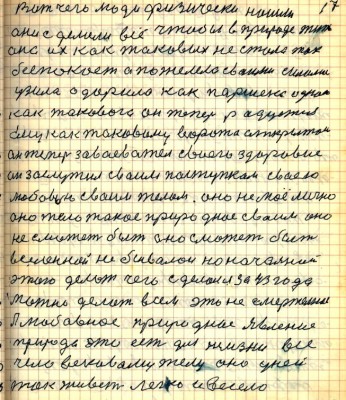 Вот чего люди физически нашли 17
они сделали всё чтобы в природе
их как таковых не стало так
беспокоет а пожелело своими силами
одарила как паршека одного
как такового он теперь радуется
ему как таковому ворота открыты
он теперь завоеватель своего здоровие
он заслужил своим поступкам своею
любовую своим телом. оно не моё лично
оно тело такое природное своим оно
не сможет быт оно сможет быт
вселенной не бывалой но началной
этого делат чего сделал за 43 года
можно делат всем это не смертельное
Любовное природное явление
природа это ест для жизни всё
чело вековому телу оно с ней
так живет легко и весело